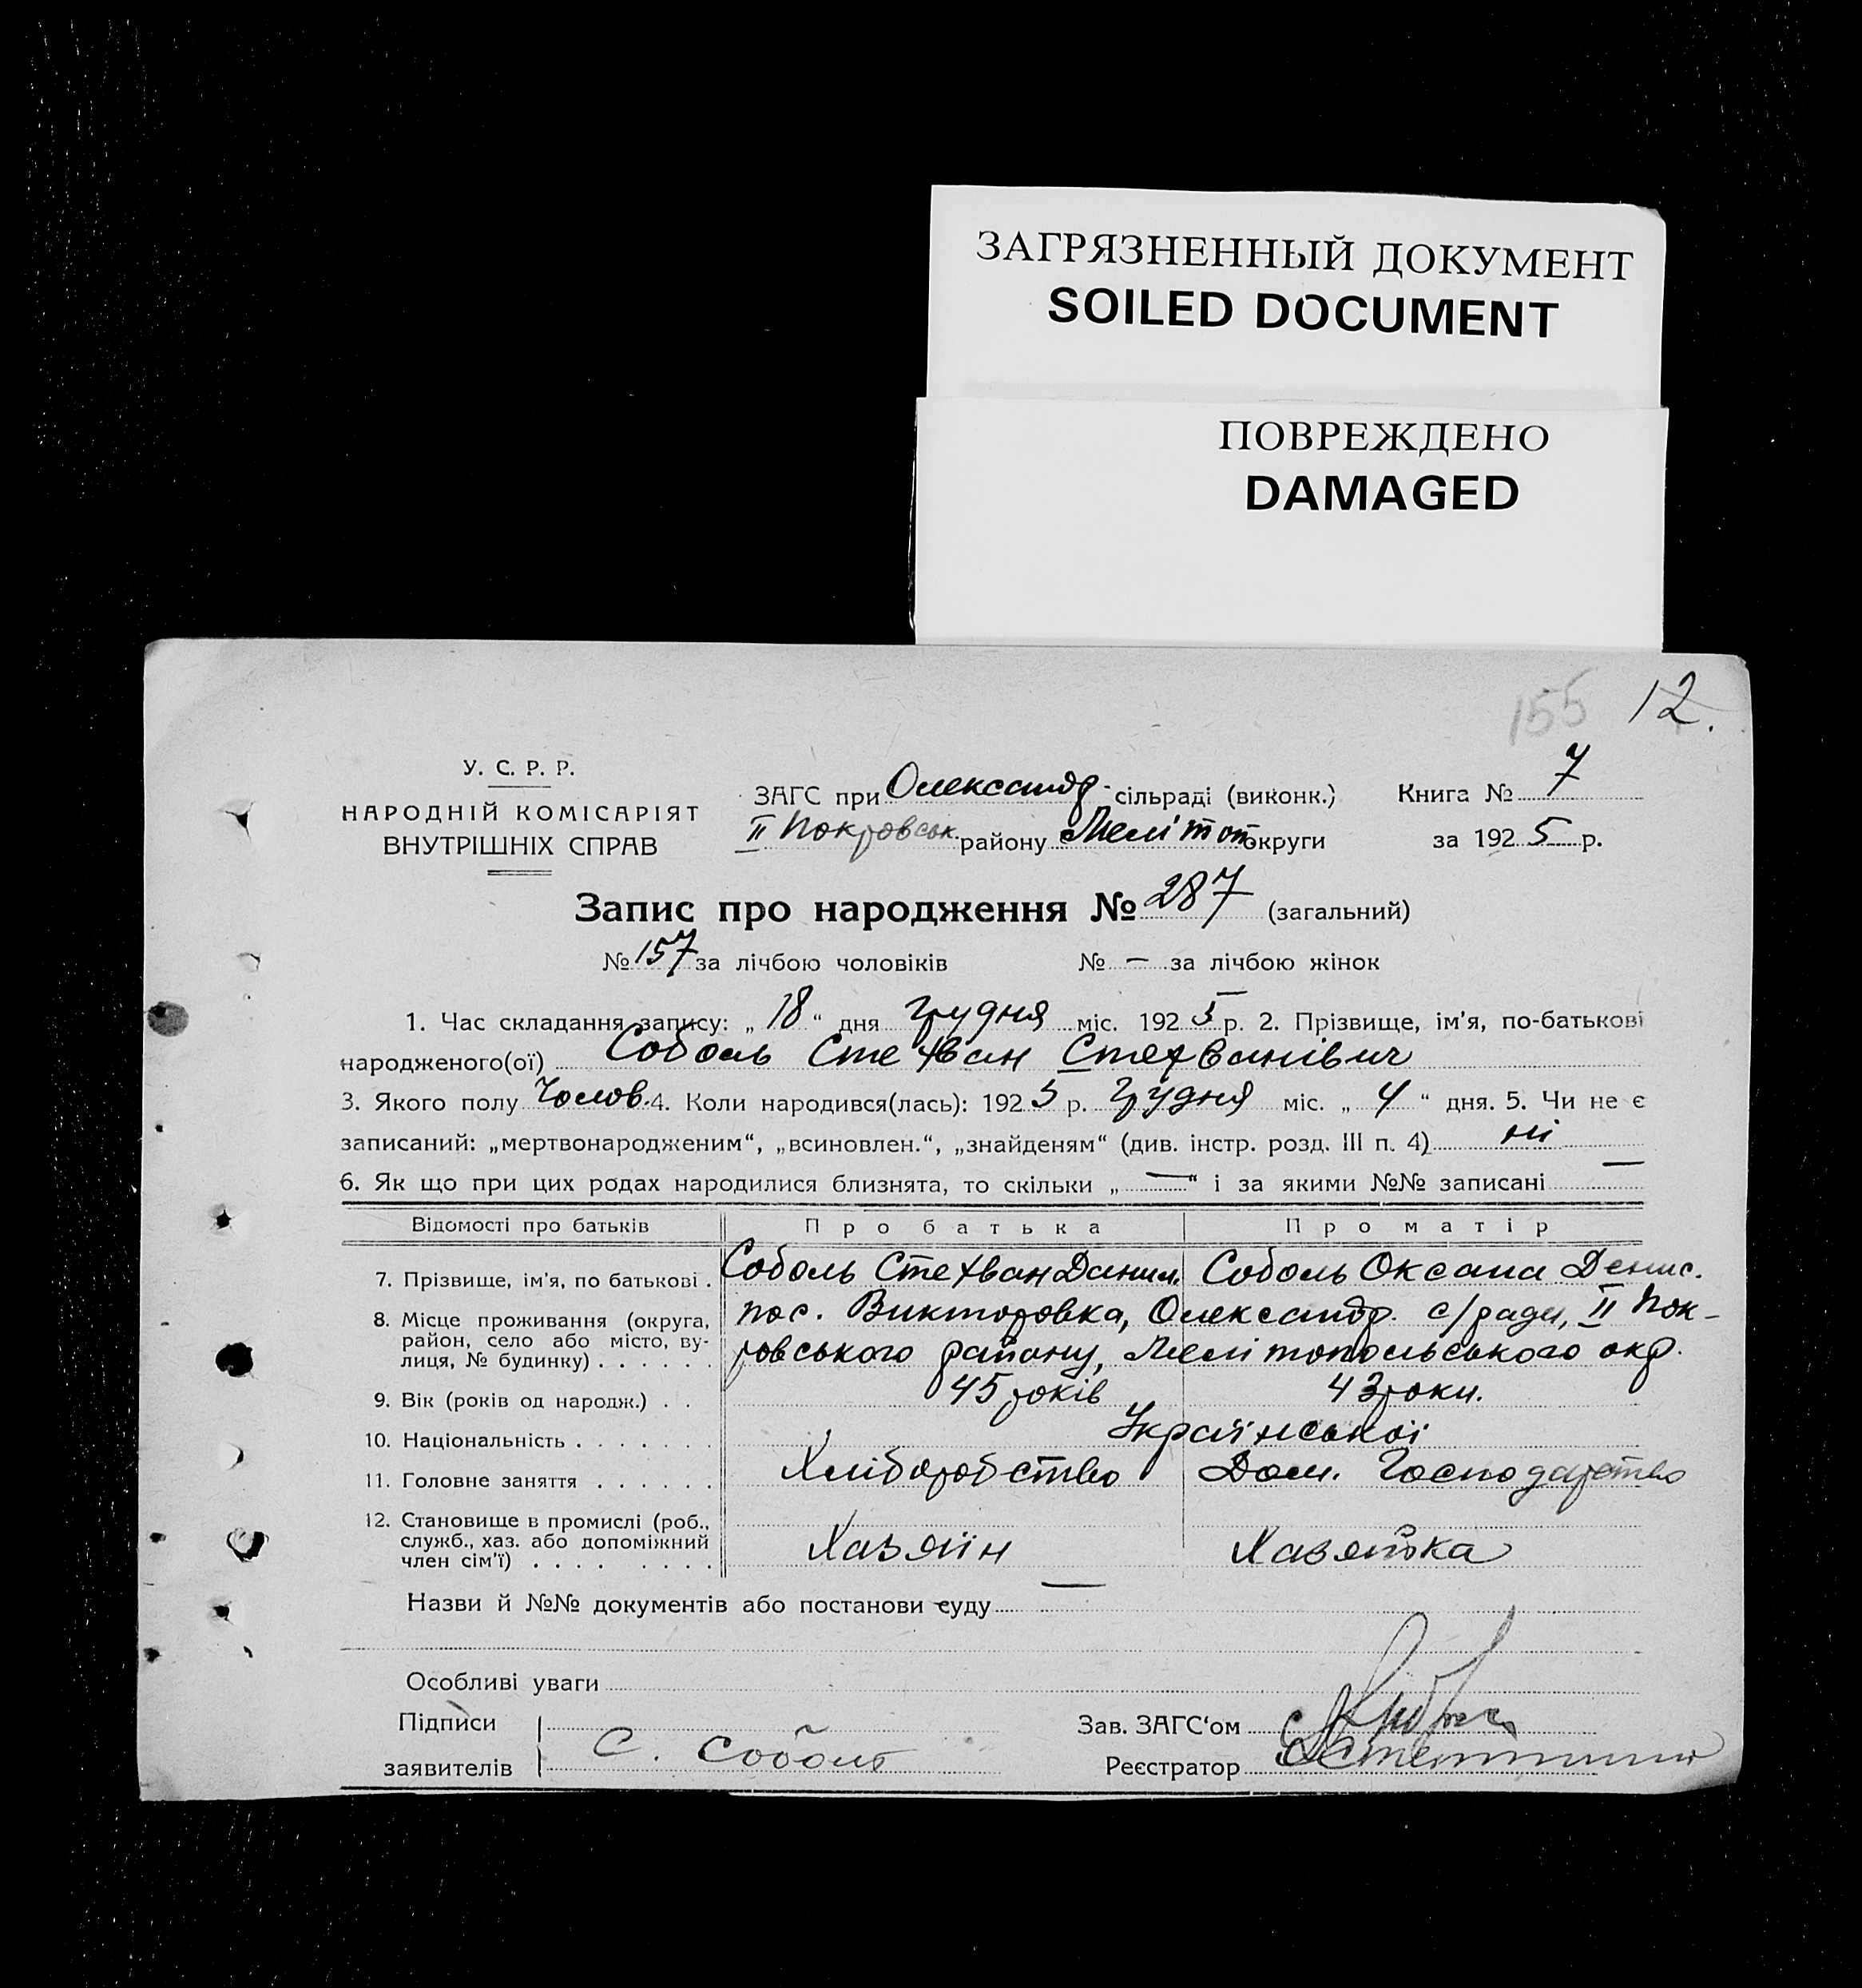 ЗАГРЯЗНЕННЫЙ ДОКУМЕНТ
SOILED DOCUMENT
ПОВРЕЖДЕНО
DAMAGED
155 12.
У. С. Р. Р.
НАРОДНІЙ КОМІСАРІЯТ
ВНУТРІШНІХ СПРАВ
ЗАГС при Олександр. сільраді (виконк.) Книга № 7
II Покровськ. району Мелітоп. округи за 1925 р.
Запис про народження № 287 (загальний)
№ 157 за лічбою чоловіків № — за лічбою жінок
1. Час складання запису: „18“ дня Грудня міс. 1925 р. 2. Прізвище, ім'я, по-батькові
народженого(ої) Соболь Стехван Стехванівич
3. Якого полу Чолов. 4. Коли народився(лась): 1925 р. Грудня міс. „4“ дня. 5. Чи не є
записаний: „мертвонародженим“, „всиновлен.“, „знайденям“ (див. інстр. розд. III п. 4) ні
6. Як що при цих родах народилися близнята, то скільки „—“ і за якими №№ записані —
Відомості про батьків Про батька Про матір
7. Прізвище, ім'я, по батькові . Соболь Стехван Данил. Соболь Оксана Денис.
8. Місце проживання (округа, район, село або місто, вулиця, № будинку) . . . . . . пос. Викторовка, Олександр. с/ради, II Пок-
ровського району, Мелітопольського окр.
9. Вік (років од народж.) . . 45 років 43 роки.
10. Національність . . . . . . . Української
11. Головне заняття . . . . . . Хліборобство Дом. Господарство
12. Становище в промислі (роб., служб., хаз. або допоміжний член сім'ї) . . . . . . . . Хазяїн Хазяйка
Назви й №№ документів або постанови суду —
Особливі уваги
Підписи
заявителів С. Соболь
Зав. ЗАГС'ом
Реєстратор